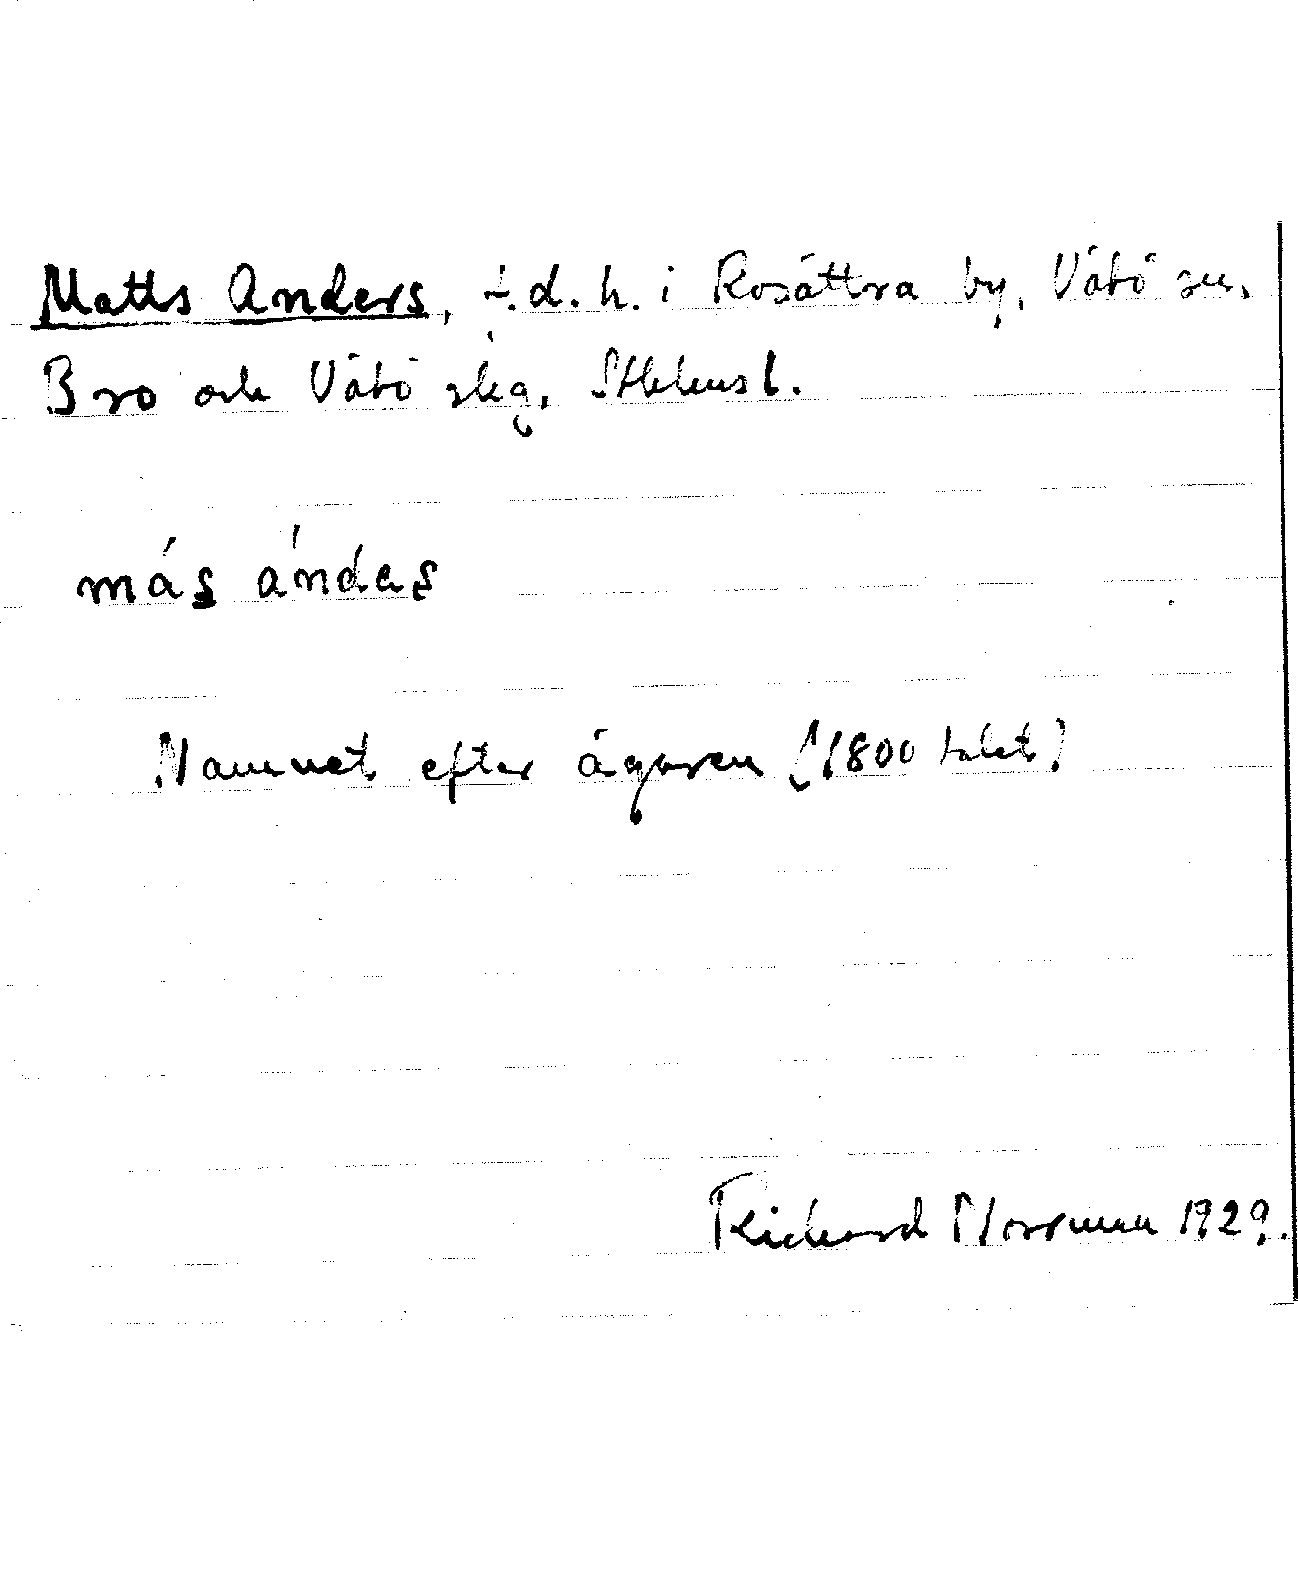 Matts Anders, f.d.h. i Rosättra by, Vätö sn.
Bro och Vätö skg, Sthlms l.
más ándas
Namnet efter ägaren (1800 talet)
Richard Norrman 1929.